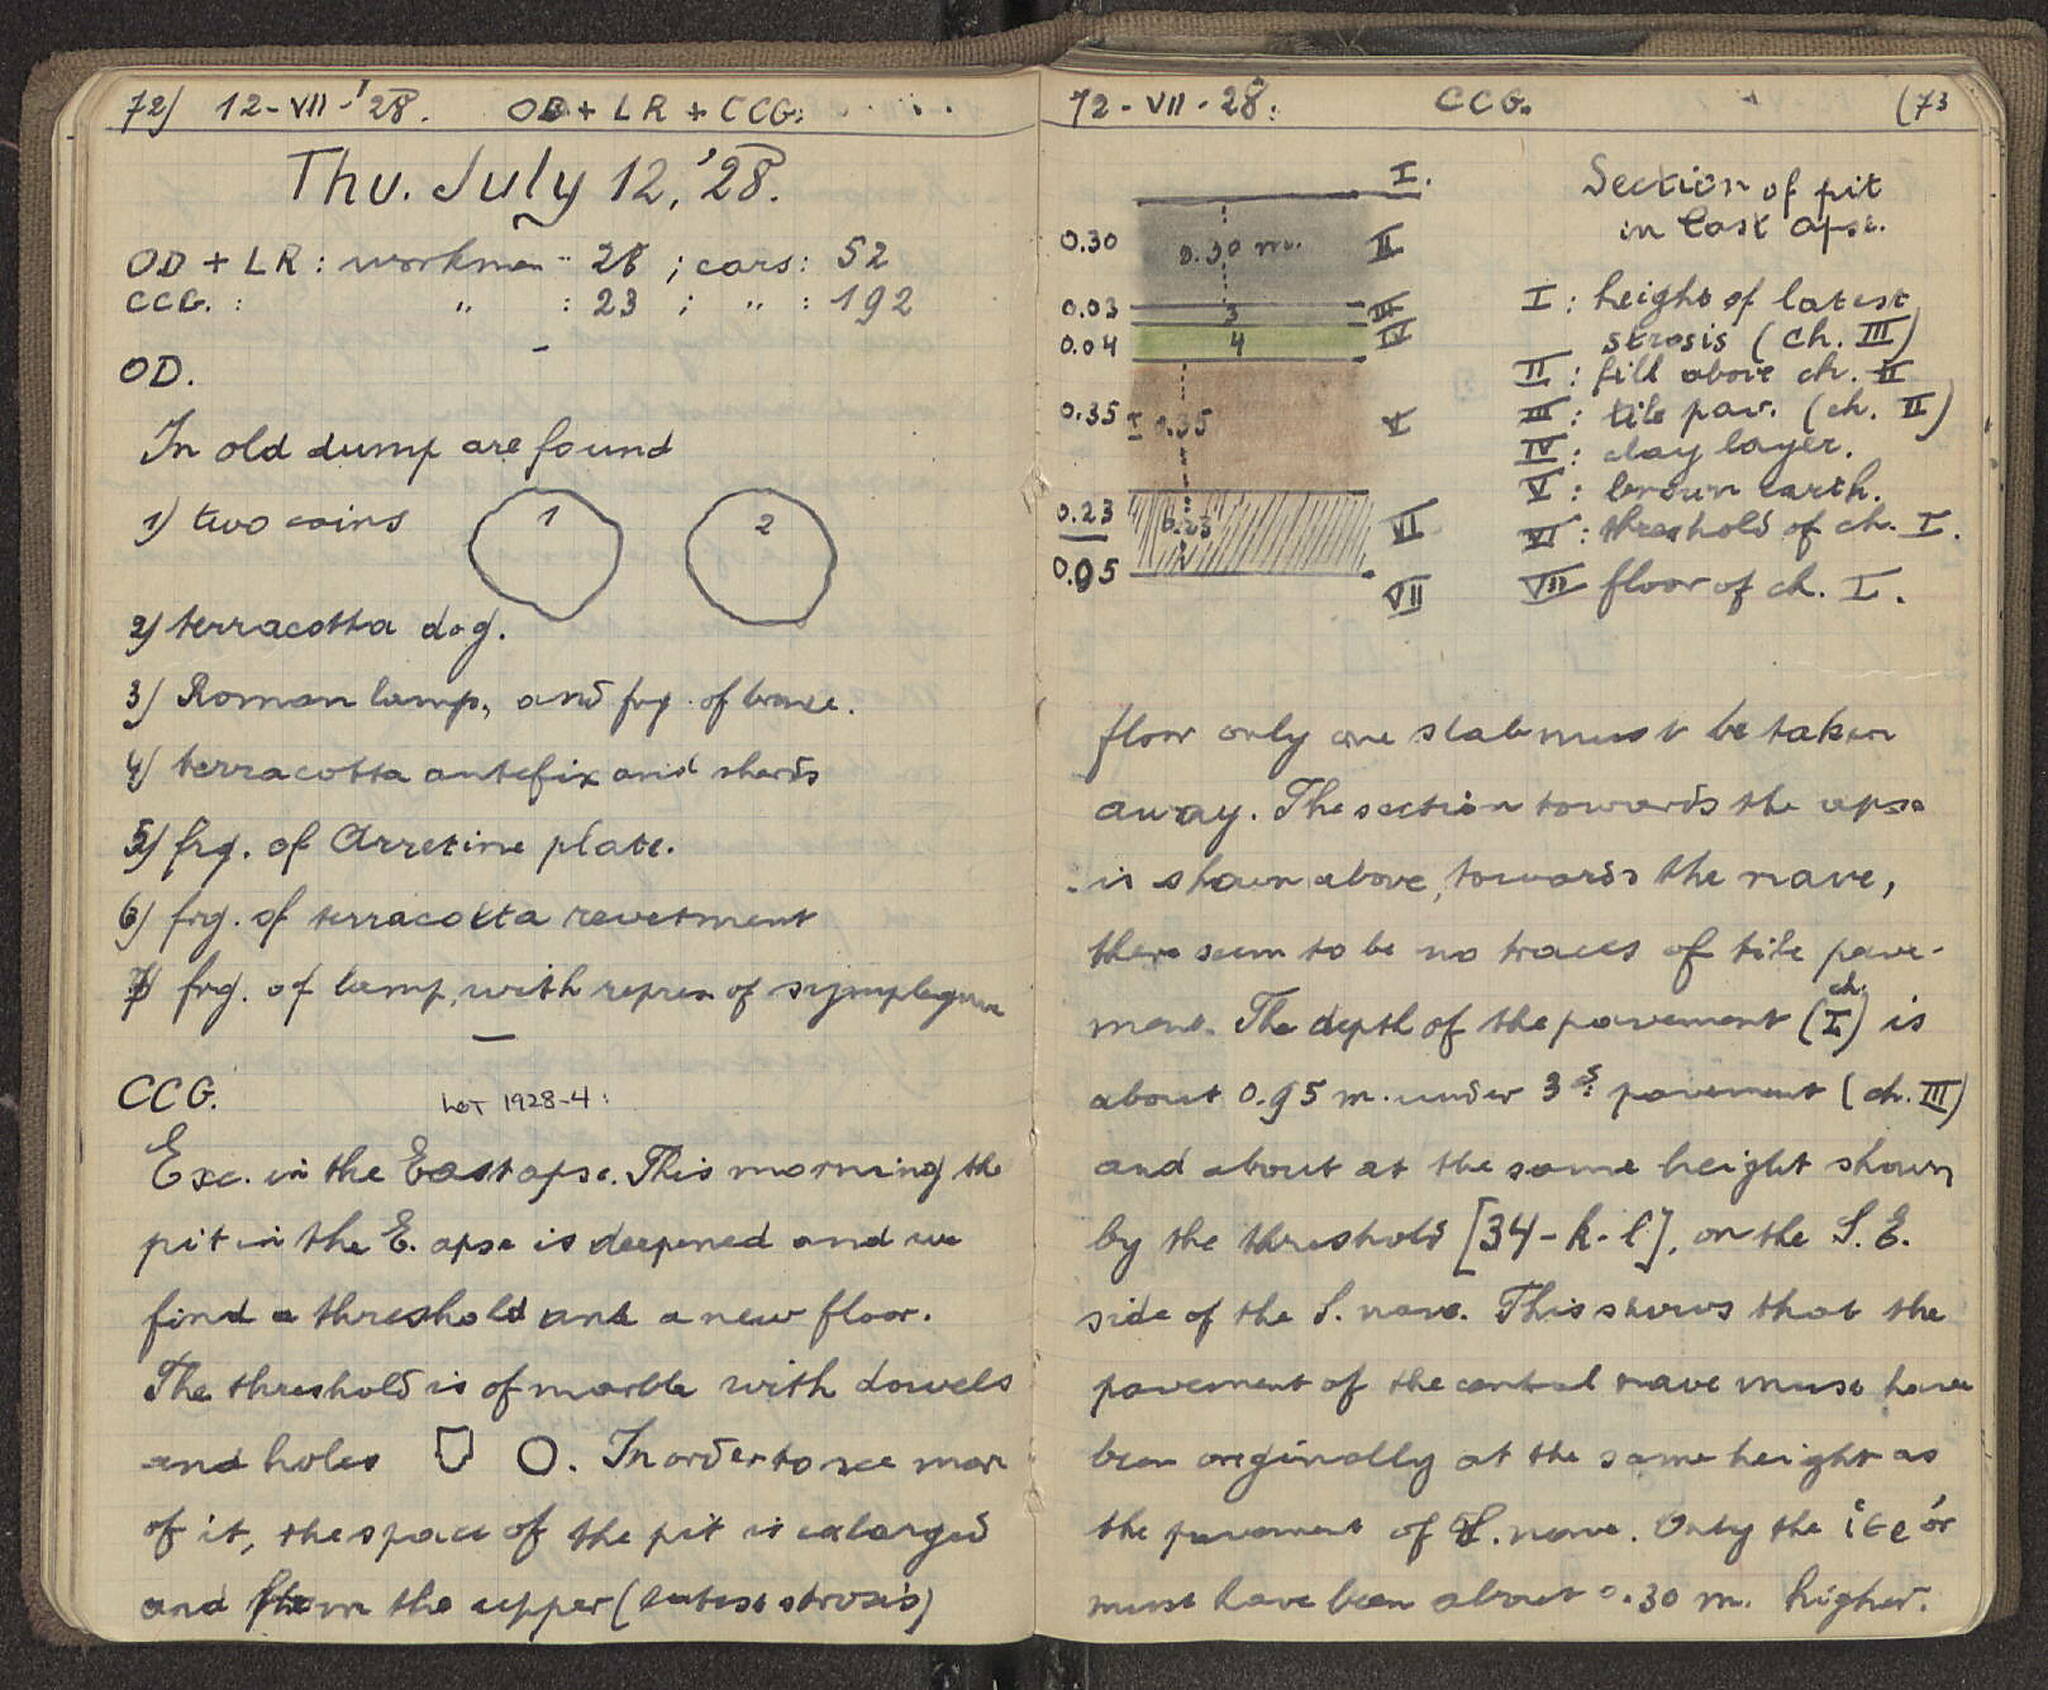 72) 12-VII-'28. OD + LR + CCG:
Thu. July 12, '28.
OD + LR : workmen : 28 ; cars : 52
CCG. : " : 23 ; " : 192
OD.
In old dump are found
1) two coins 1 2
2) terracotta dog.
3) Roman lamp, and frg. of bronze.
4) terracotta antefix and sherds
5) frg. of Arretine plate.
6) frg. of terracotta revetment
7) frg. of lamp, with repres. of symplegma
CCG. Lot 1928-4:
Exc. in the East apse. This morning the
pit in the E. apse is deepened and we
find a threshold and a new floor.
The threshold is of marble with dowels
and holes . In order to see more
of it, the space of the pit is enlarged
and from the upper (latest strosis)
12-VII-28: CCG. (73
Section of pit
in East apse.
I.
0.30 0.30 m. II
0.03 3 III
0.04 4 IV
0.35 0.35 V
0.23 0.23 VI
0.95 VII
I : height of latest
strosis (ch. III)
II : fill above ch. II
III : tile pav. (ch. II)
IV : clay layer.
V : brown earth.
VI : threshold of ch. I.
VII floor of ch. I.
floor only one slab must be taken
away. The section towards the apse
is shown above, towards the nave,
there seem to be no traces of tile pave-
ment. The depth of the pavement (ch. I) is
about 0.95 m. under 3d pavement (ch. III)
and about at the same height shown
by the threshold [34-k-l], on the S.E.
side of the S. nave. This shows that the
pavement of the central nave must have
been originally at the same height as
the pavement of S. nave. Only the
must have been about 0.30 m. higher.